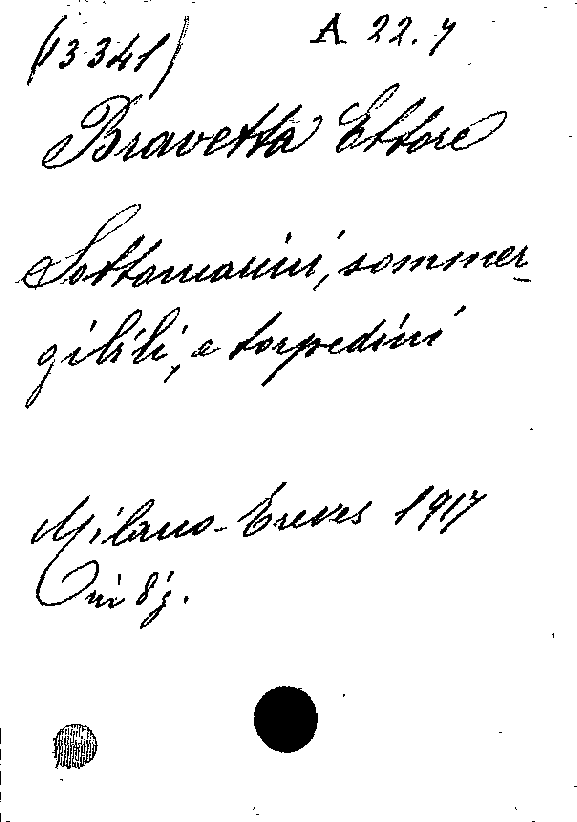 (13341) A 22.7
Bravetta Ettore
Sottomarini, sommer-
gibili, e torpedini
Milano - Treves 1917
in 8º.